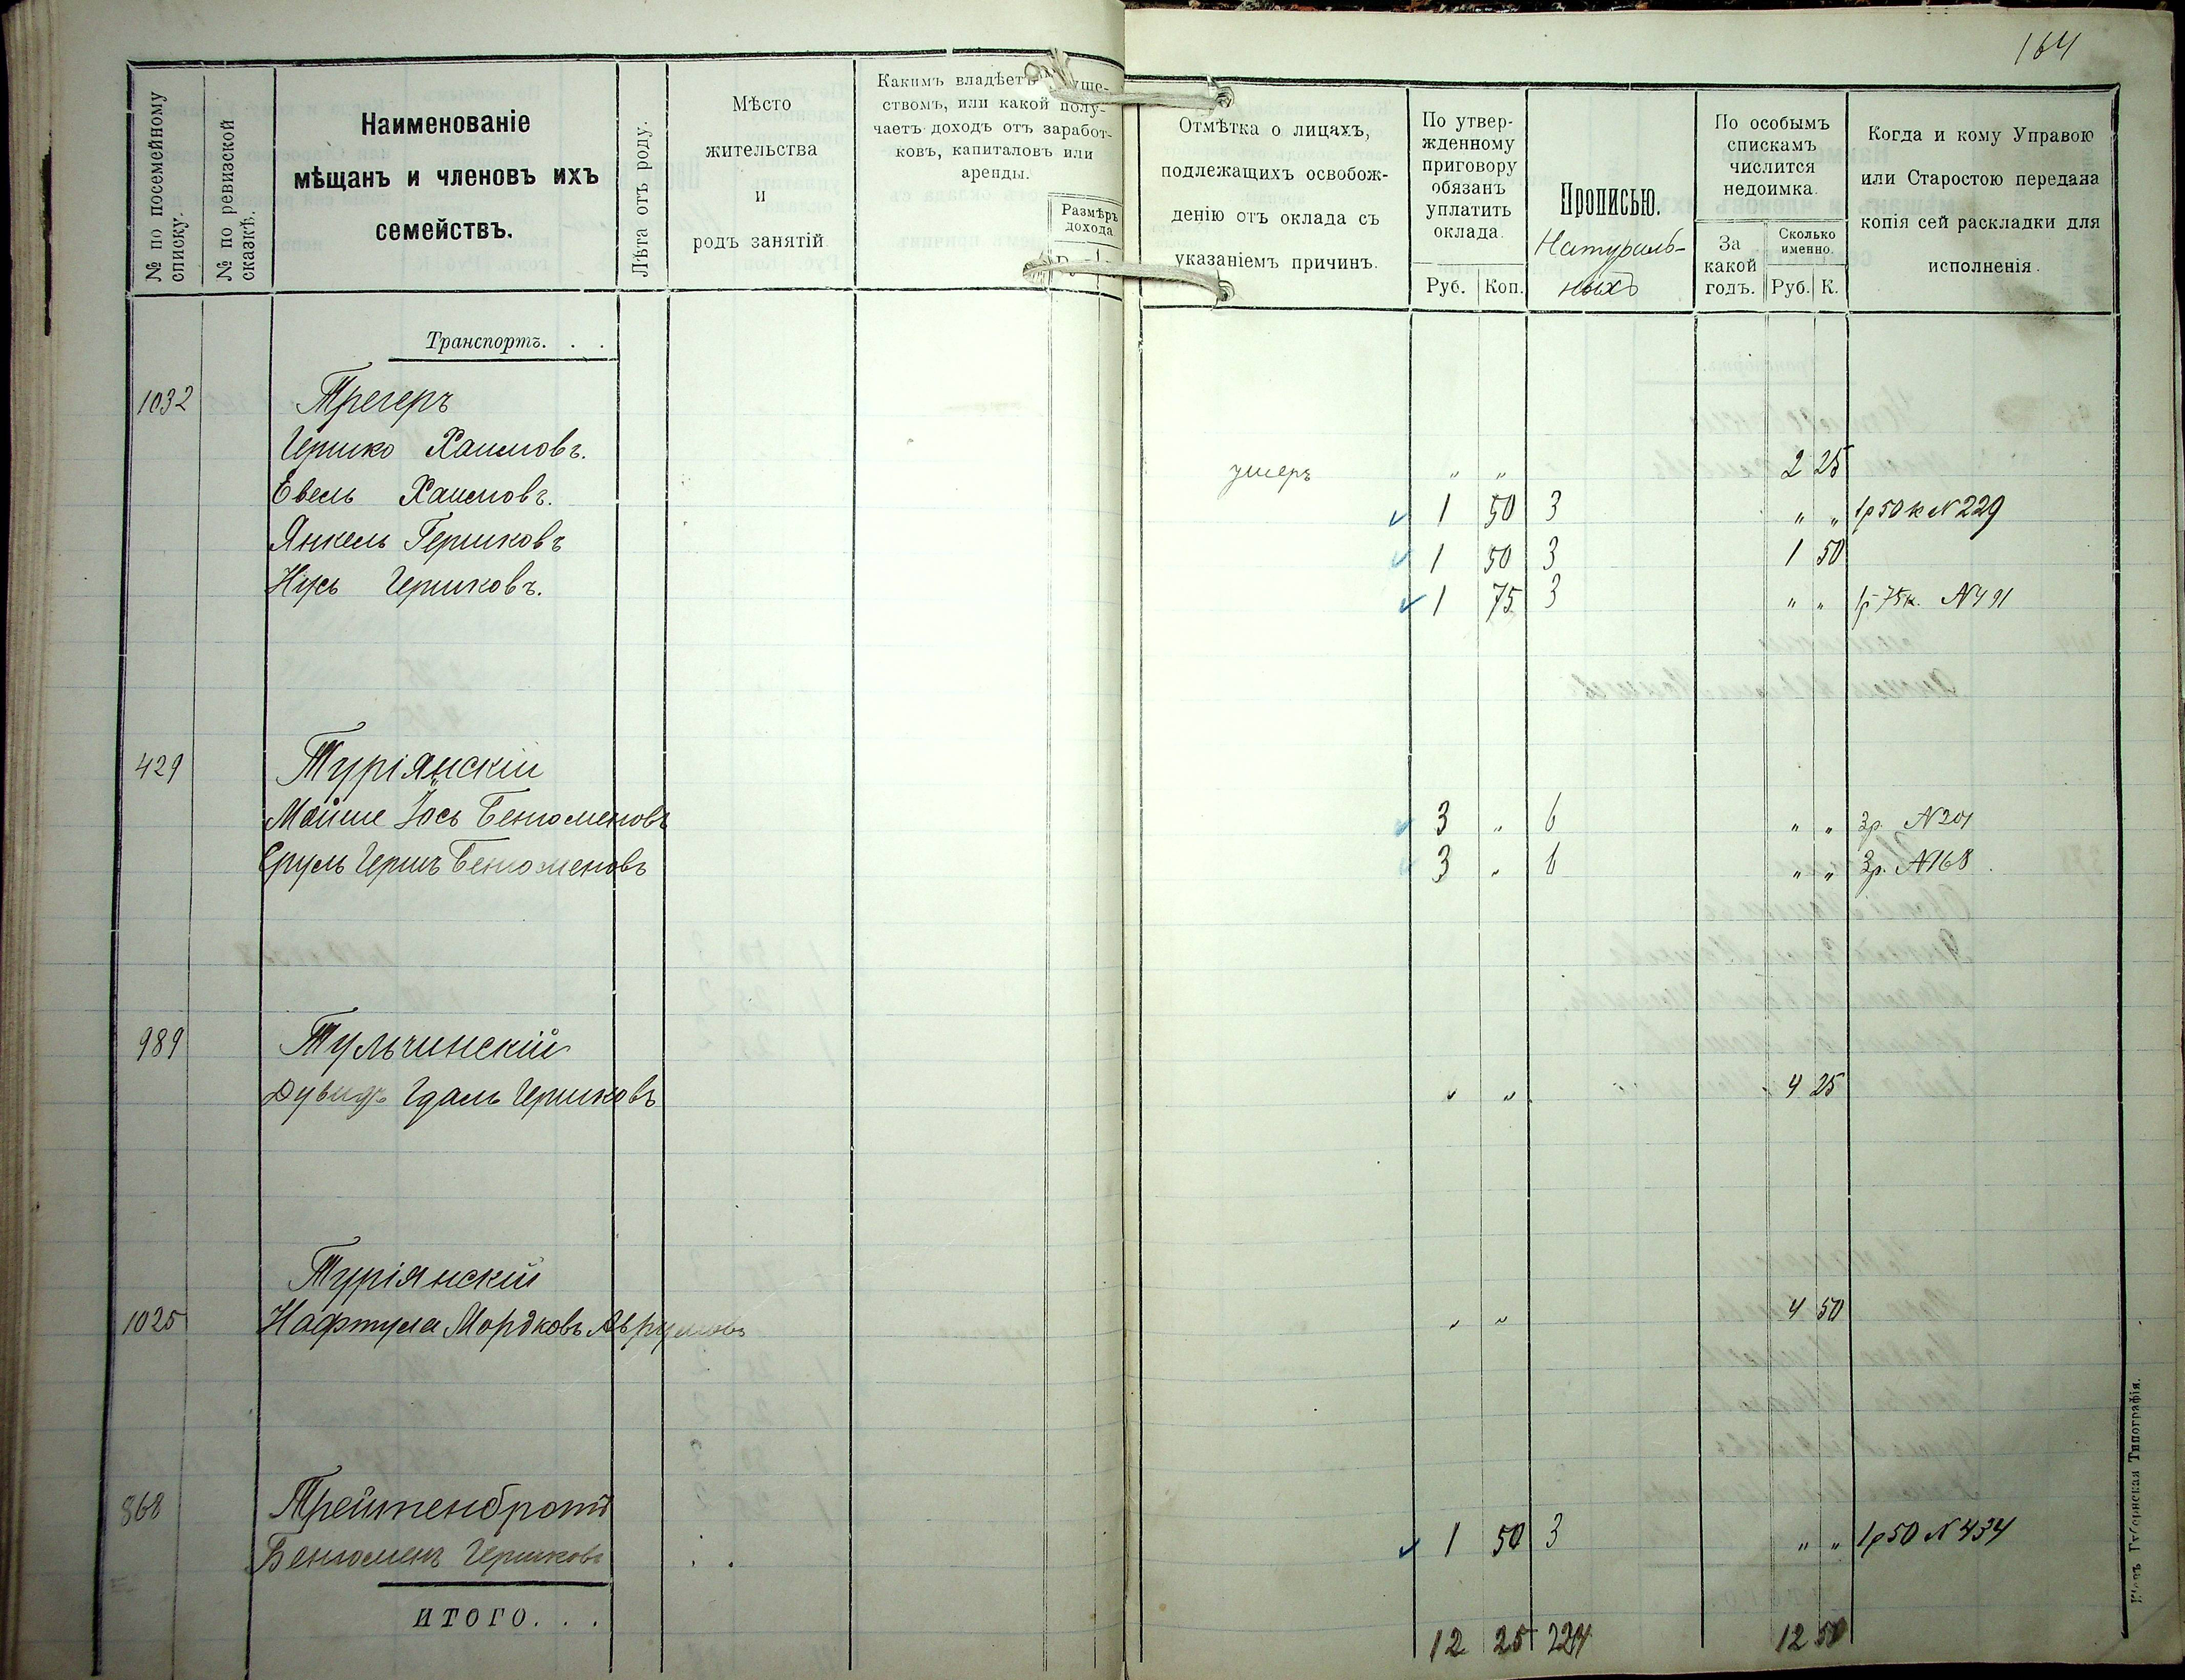 164
№ по посемейному списку.
№ по ревизской сказкѣ.
Наименованіе
мѣщанъ и членовъ ихъ
семействъ.
Лѣта отъ роду.
Мѣсто
жительства
и
родъ занятій
Какимъ владѣетъ
ствомъ, или какой полу-
чаетъ доходъ отъ заработ-
ковъ, капиталовъ или
аренды.
Размѣръ
дохода
Отмѣтка о лицахъ,
подлежащихъ освобож-
денію отъ оклада съ
указаніемъ причинъ.
По утвер-
жденному
приговору
обязанъ
уплатить
оклада.
Руб. Коп.
Прописью.
Натураль-
ныхъ
По особымъ
спискамъ
числится
недоимка.
За
какой
годъ.
Сколько
именно.
Руб. К.
Когда и кому Управою
или Старостою передана
копія сей раскладки для
исполненія.
Транспортъ. . .
1032 Трегеръ
Гершко Хаимовъ. умеръ " " 2 25
Евель Хаимовъ. 1 50 3 " " 1р 50к N 229
Янкель Гершковъ 1 50 3 1 50
Нусь Гершковъ. 1 75 3 " " 1р 75к. N 491
429 Туріянскій
Мойше Іось Бенюменовъ 3 " 6 " " 3р. N 201
Сруль Гершъ Бенюменовъ 3 " 6 " " 3р. N 168
989 Тульчинскій
Дувидъ Гдаль Гершковъ " " 4 25
Туріянскій
1025 Нафтула Мордковъ Аврумовъ " " 4 50
868 Трейтенбротъ
Бенюменъ Гершковъ 1 50 3 " " 1р 50 N 434
ИТОГО. . .
12 25 12 50
Кіевъ Губернская Типографія.